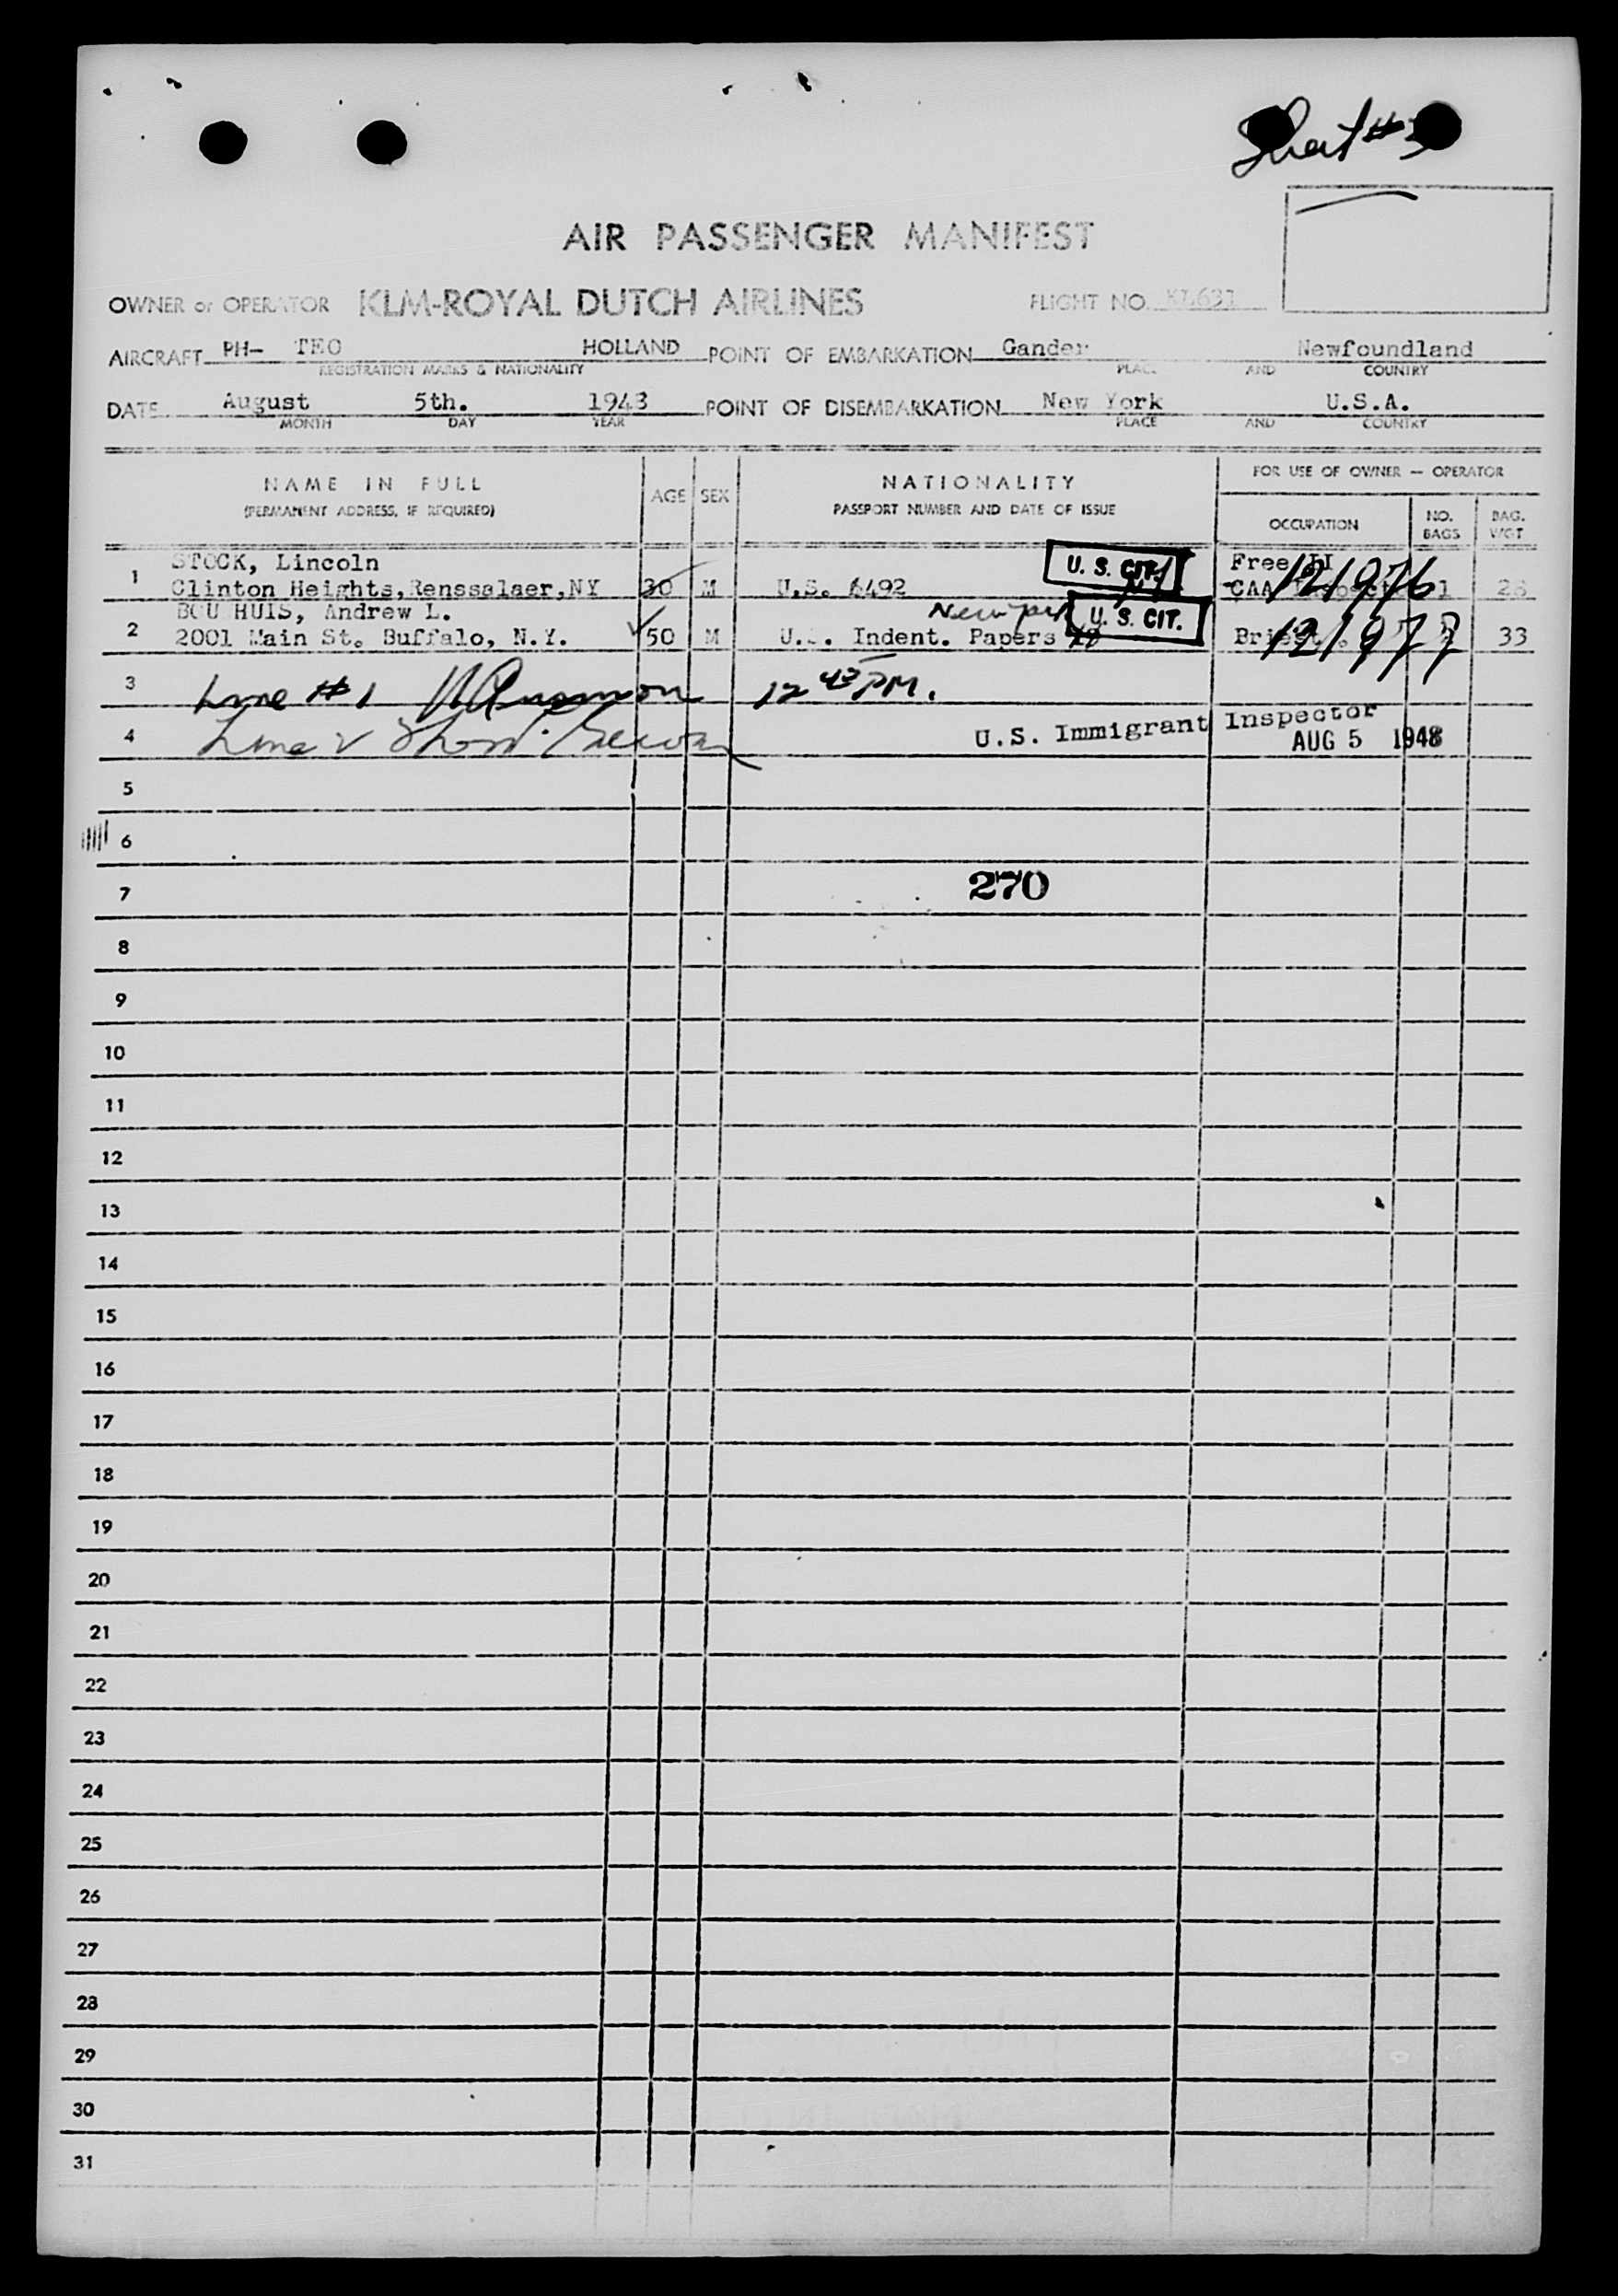 Sheet #3
AIR PASSENGER MANIFEST
OWNER or OPERATOR KLM-ROYAL DUTCH AIRLINES FLIGHT NO. KL631
AIRCRAFT PH- TEO HOLLAND POINT OF EMBARKATION Gander Newfoundland
REGISTRATION MARKS & NATIONALITY PLACE AND COUNTRY
DATE August 5th. 1948 POINT OF DISEMBARKATION New York U.S.A.
MONTH DAY YEAR PLACE AND COUNTRY
NAME IN FULL AGE SEX NATIONALITY FOR USE OF OWNER — OPERATOR
(PERMANENT ADDRESS, IF REQUIRED) PASSPORT NUMBER AND DATE OF ISSUE OCCUPATION NO. BAGS BAG. WGT
STOCK, Lincoln U. S. CIT. Free
1 Clinton Heights, Renssalaer, NY 30 M U.S. 6492 CAA 121976 1 28
BOU HUIS, Andrew L. U. S. CIT.
2 2001 Main St. Buffalo, N.Y. 50 M U.S. Indent. Papers 121977 33
3 Line #1 12 45 PM.
4 Line 2 U.S. Immigrant Inspector
AUG 5 1948
5
6
7 270
8
9
10
11
12
13
14
15
16
17
18
19
20
21
22
23
24
25
26
27
28
29
30
31